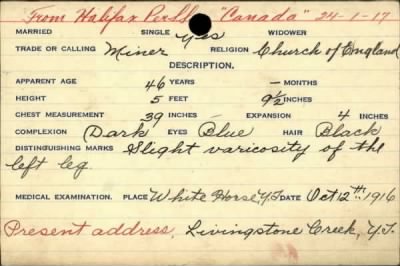 From Halifax Per "Canada" 24-1-17
MARRIED SINGLE Yes WIDOWER
TRADE OR CALLING Miner RELIGION Church of England
DESCRIPTION.
APPARENT AGE 46 YEARS - MONTHS
HEIGHT 5 FEET 9½ INCHES
CHEST MEASUREMENT 39 INCHES EXPANSION 4 INCHES
COMPLEXION Dark EYES Blue HAIR Black
DISTINGUISHING MARKS Slight varicosity of the
left leg.
MEDICAL EXAMINATION. PLACE White Horse Y.T. DATE Oct 12th. 1916
Present address, Livingstone Creek, Y.T.